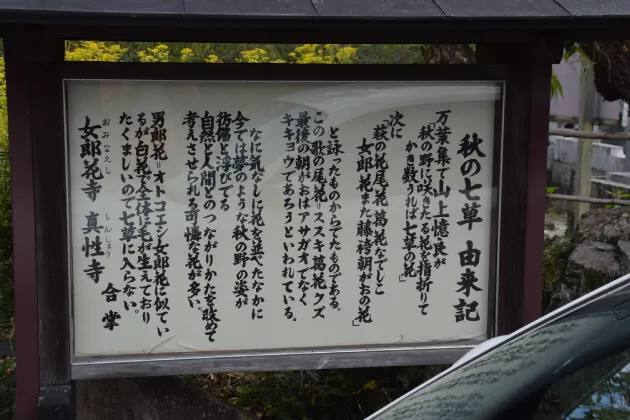 秋の七草 由来記
万葉集で山上憶良が
「秋の野に咲きたる花を指折りて
かき数うれば七草の花」
次に
「萩の花尾花葛花なでしこ
女郎花また藤袴朝がおの花」
と詠ったものからでたものである。
この歌の尾花=ススキ葛花=クズ
最後の朝がおはアサガオでなく
キキョウであろうといわれている。
なに気なしに花を並べたなかに
今では夢のような秋の野の姿が
彷彿と浮びでる
自然と人間とのつながりかたを改めて
考えさせられる可憐な花が多い。
男郎花=オトコエシ女郎花に似てい
るが白花で全体に毛が生えており
たくましいので七草に入らない。
おみなえし しんしょうじ
女郎花寺 真性寺 合掌